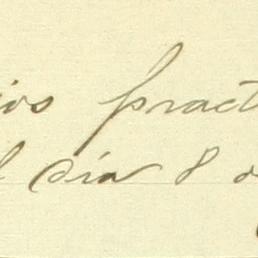 ios pract
l día 8 d